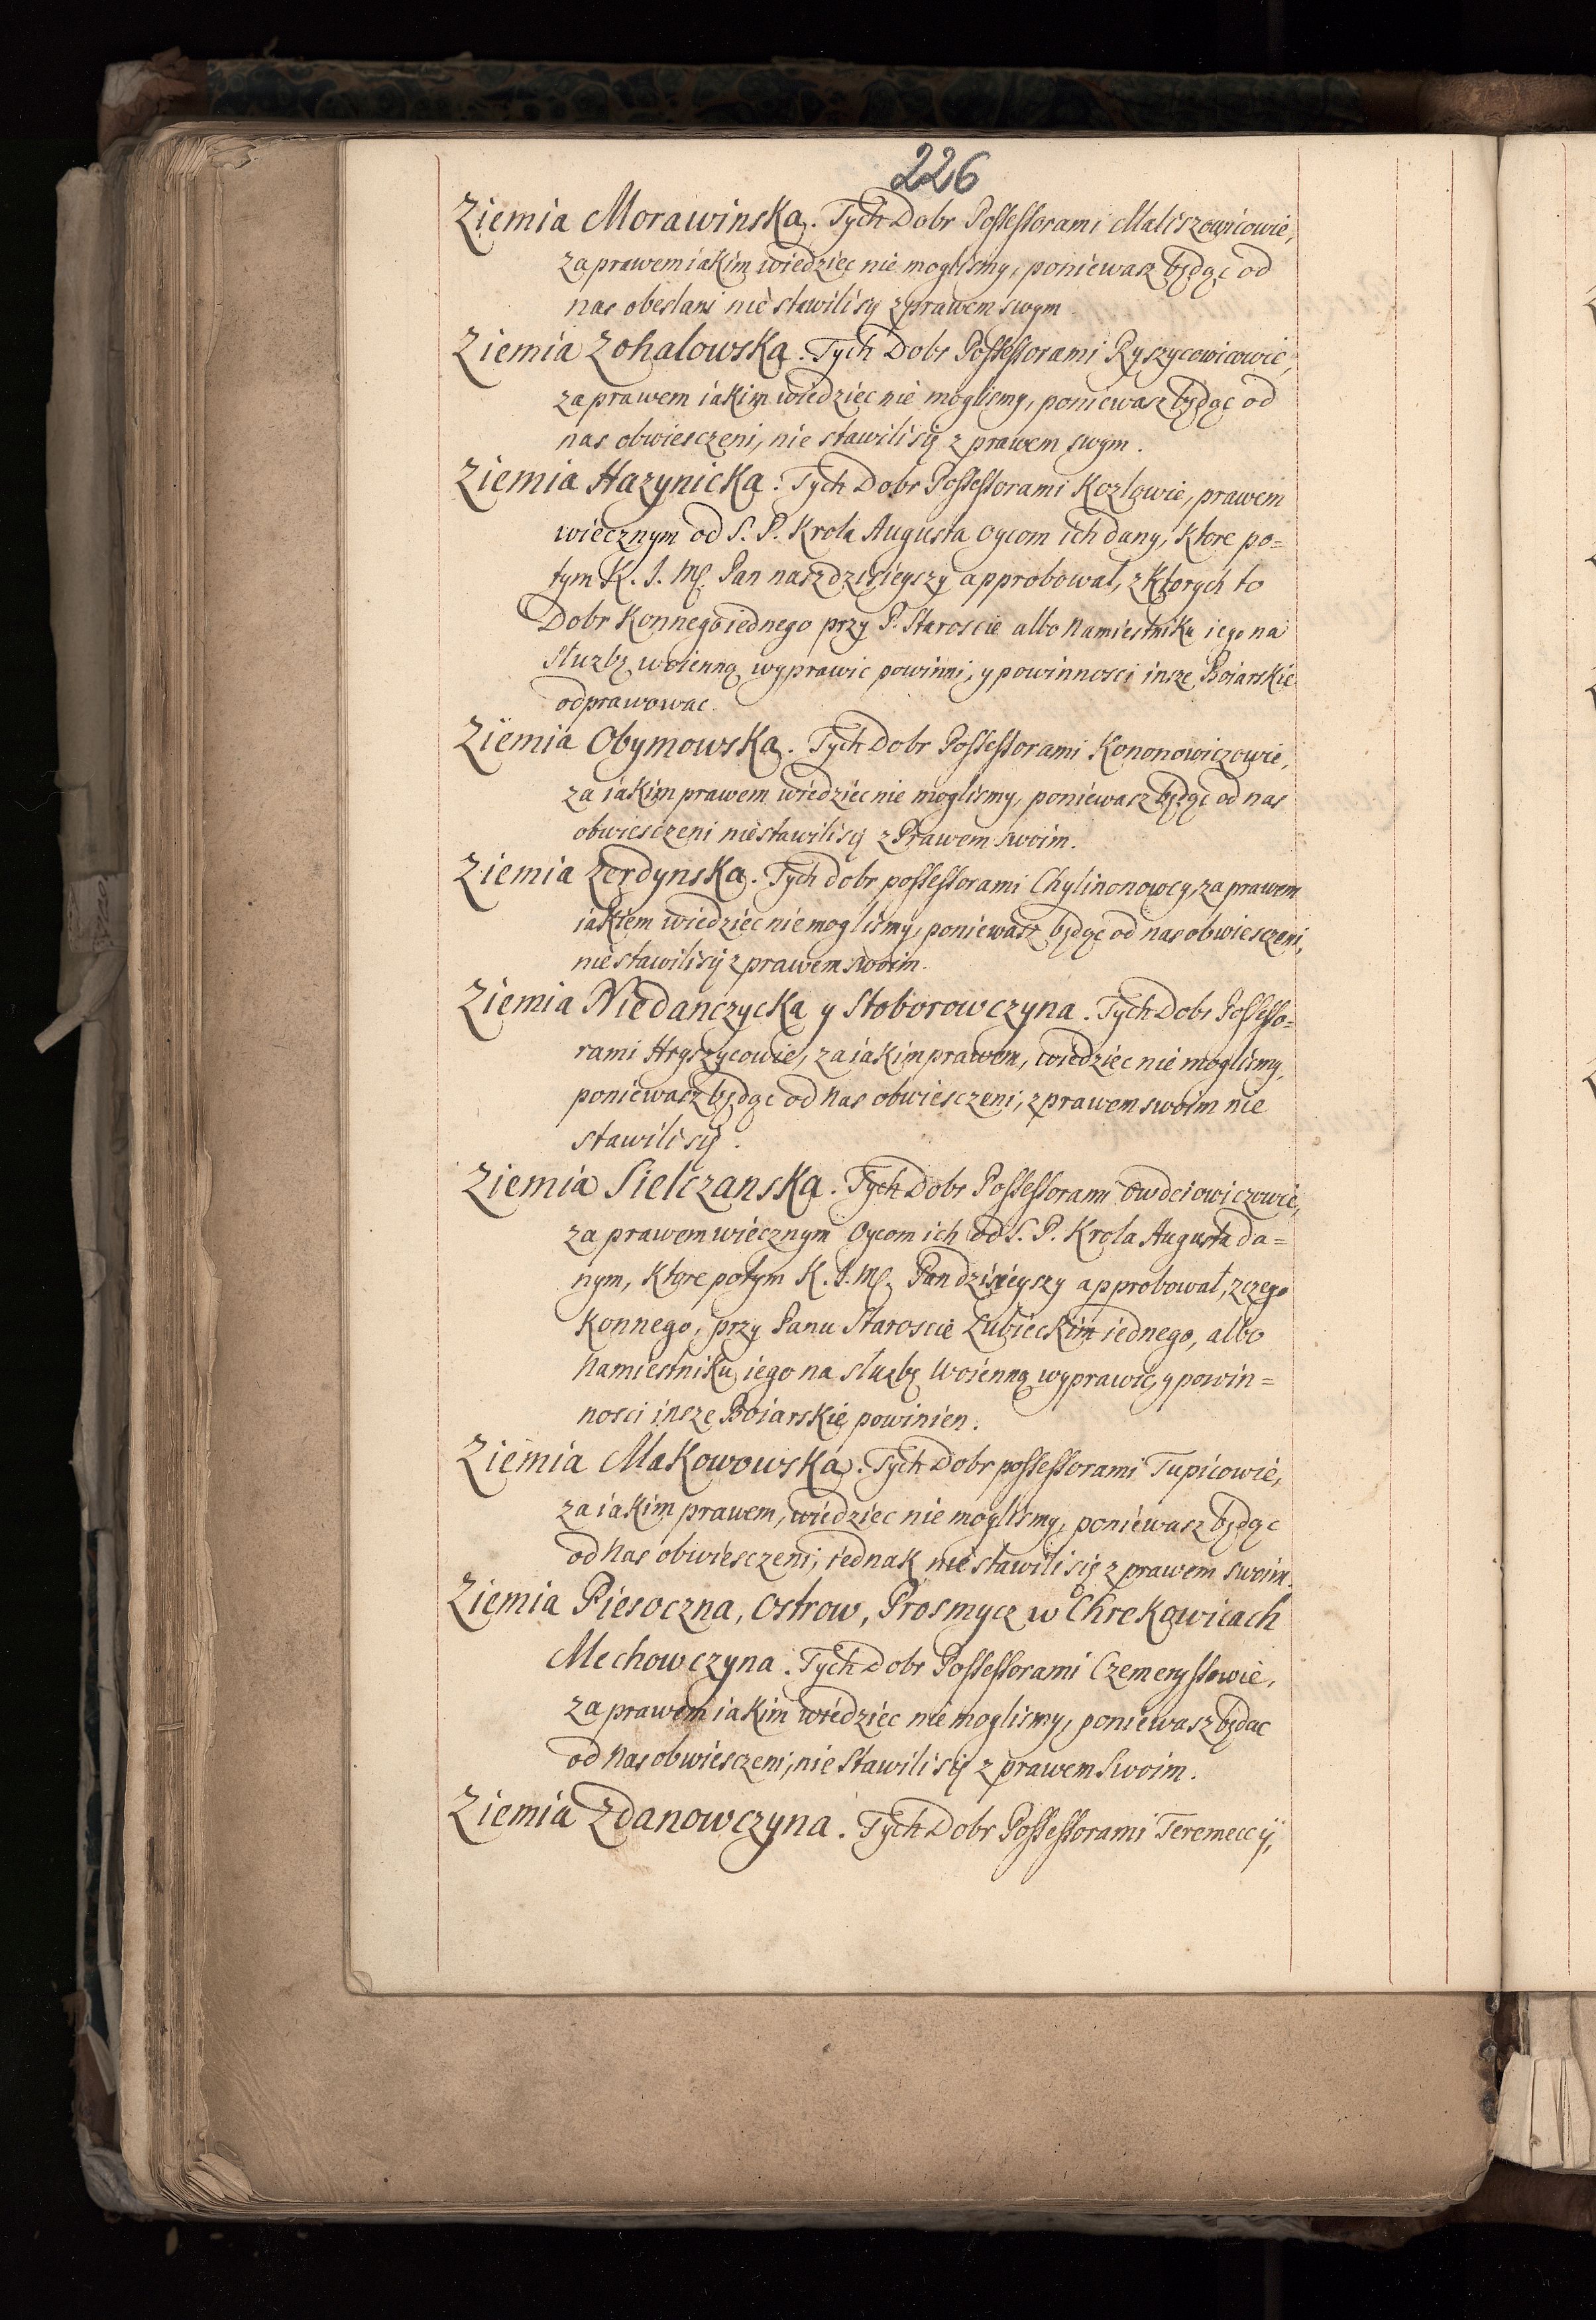 226
Ziemia Morawinska. Tych Dobr Possessorami Maliszowicowie,
za prawem iakim wiedziec nie moglismy, poniewasz będąc od
nas obeslani nie stawili się z prawem swym
Ziemia Zohalowska. Tych Dobr Possessorami Ryszycowicowie,
za prawem iakim wiedziec nie moglismy, poniewasz będąc od
nas obwiesczeni, nie stawili się z prawem swym.
Ziemia Hazynicka. Tych Dobr Possessorami Kozlowie, prawem
wiecznym od S. P. Krola Augusta oycom ich dany, ktore po=
tym K. J. Mć. Pan nasz dzisieyszy approbował, z ktorych to
Dobr Konnego iednego przy P. Staroscie albo Namiestniku iego na
słuzbę woienną wyprawic powinni, y powinnosci insze Boiarskie
odprawowac.
Ziemia Obymowska. Tych Dobr Possessorami Kononowiczowie,
za iakim prawem wiedziec nie moglismy, poniewasz będąc od nas
obwiesczeni nie stawili się z Prawem swoim.
Ziemia Zerdynska. Tych dobr possessorami Chylinonowcy, za prawem
iakiem wiedziec nie moglismy, poniewasz będąc od nas obwiesczeni,
nie stawili się z prawem swoim.
Ziemia Niedanczycka y Stoborowczyna. Tych Dobr Possesso=
rami Hryszycowie, za iakim prawem, wiedziec nie moglismy,
poniewasz będąc od nas obwiesczeni, z prawem swoim nie
stawili się.
Ziemia Sielczanska. Tych Dobr Possessorami Owdciowiczowie,
za prawem wiecznym Oycom ich od S. P. Krola Augusta da=
nym, ktore potym K. J. Mć. Pan dzisieyszy approbował, z czego
Konnego, przy Panu Staroscie Lubieckim iednego, albo
Namiestniku iego na słuzbę woienną wyprawic, y powin=
nosci insze Boiarskie powinien.
Ziemia Makowowska. Tych Dobr possessorami Tupicowie,
za iakim prawem, wiedziec nie moglismy, poniewasz będąc
od nas obwiesczeni, iednak nie stawili się z prawem swoim.
Ziemia Piesoczna, Ostrow, Prosmycz w Chrekowicach
Mechowczyna. Tych Dobr Possessorami Czemerysowie,
za prawem iakim wiedziec nie moglismy, poniewasz będąc
od nas obwiesczeni, nie stawili się z prawem swoim.
Ziemia Zdanowczyna. Tych Dobr Possessorami Teremeccy,